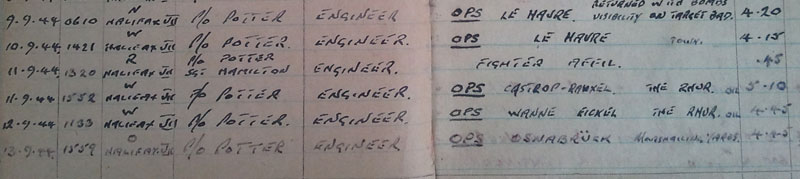 RETURNED WITH BOMBS
N
9.9.44 0610 HALIFAX VII P/O POTTER ENGINEER OPS LE HAVRE. VISIBILITY ON TARGET BAD. 4.20
W
10.9.44 1421 HALIFAX VII P/O POTTER. ENGINEER. OPS LE HAVRE TOWN. 4.15
R P/O POTTER
11.9.44 1320 HALIFAX VII SGT HAMILTON ENGINEER. FIGHTER AFFIL. .45
W
11.9.44 1552 HALIFAX VII P/O POTTER ENGINEER. OPS CASTROP-RAUXEL THE RHUR. OIL 5.10
W
12.9.44 1133 HALIFAX VII P/O POTTER. ENGINEER. OPS WANNE EICKEL THE RHUR. OIL 4.45
O
13.9.44 1559 HALIFAX VII P/O POTTER ENGINEER OPS OSNABRÜCK MARSHALLING YARDS. 4.45